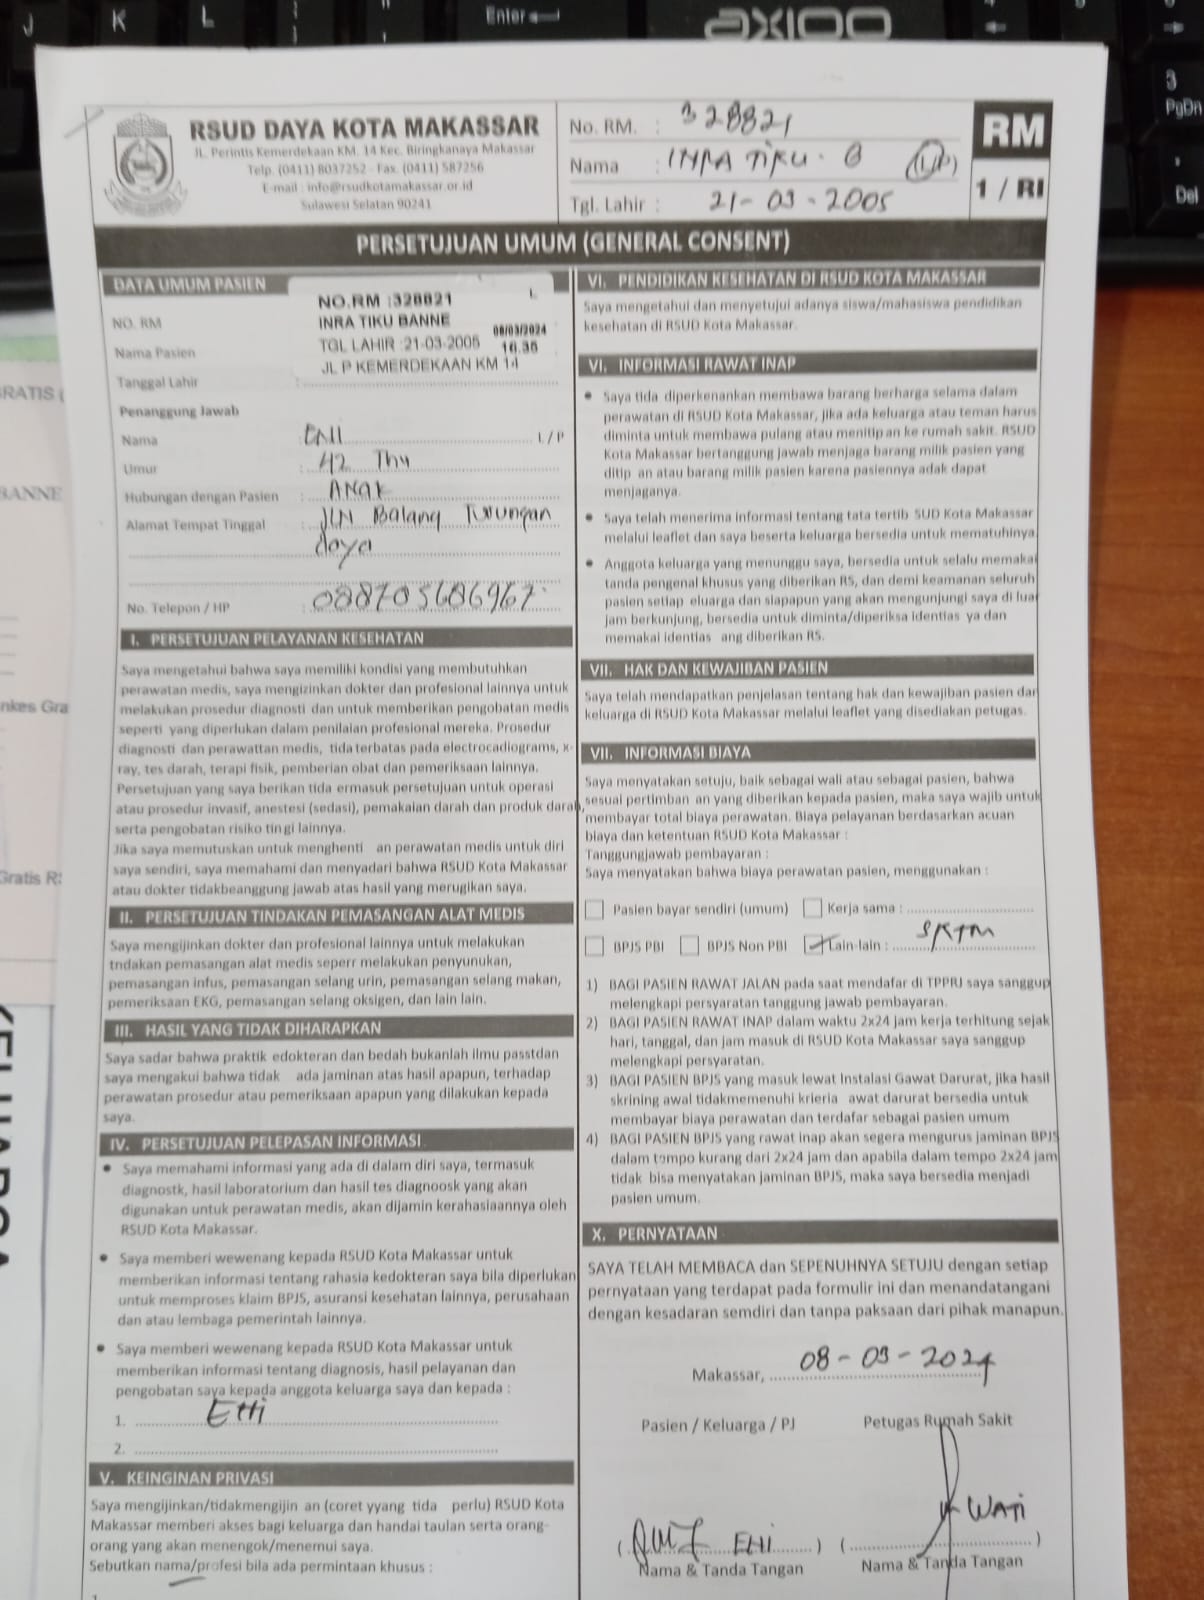 J
K
L
Enter
AXIOO
3
PgDn
Del
RSUD DAYA KOTA MAKASSAR
JL. Perintis Kemerdekaan KM. 14 Kec. Biringkanaya Makassar
Telp. (0411) 8037252 - Fax. (0411) 587256
E-mail : info@rsudkotamakassar.or.id
Sulawesi Selatan 90241
No. RM. : 328821
Nama : INRA TIKU. B (L/P)
Tgl. Lahir : 21-03-2005
RM
1 / RI
PERSETUJUAN UMUM (GENERAL CONSENT)
DATA UMUM PASIEN
NO. RM
Nama Pasien
Tanggal Lahir :
NO.RM :328821 L
INRA TIKU BANNE 08/03/2024
TGL LAHIR :21-03-2005 16.35
JL P KEMERDEKAAN KM 14
Penanggung Jawab
Nama : L / P
Umur : 42 Thn
Hubungan dengan Pasien : Anak
Alamat Tempat Tinggal : JLN Balang Turungan
daya
No. Telepon / HP : 088705686967
I. PERSETUJUAN PELAYANAN KESEHATAN
Saya mengetahui bahwa saya memiliki kondisi yang membutuhkan
perawatan medis, saya mengizinkan dokter dan profesional lainnya untuk
melakukan prosedur diagnosti dan untuk memberikan pengobatan medis
seperti yang diperlukan dalam penilaian profesional mereka. Prosedur
diagnosti dan perawattan medis, tida terbatas pada electrocadiograms, x-
ray, tes darah, terapi fisik, pemberian obat dan pemeriksaan lainnya.
Persetujuan yang saya berikan tida ermasuk persetujuan untuk operasi
atau prosedur invasif, anestesi (sedasi), pemakaian darah dan produk darah,
serta pengobatan risiko tin gi lainnya.
Jika saya memutuskan untuk menghenti an perawatan medis untuk diri
saya sendiri, saya memahami dan menyadari bahwa RSUD Kota Makassar
atau dokter tidakbeanggung jawab atas hasil yang merugikan saya.
II. PERSETUJUAN TINDAKAN PEMASANGAN ALAT MEDIS
Saya mengijinkan dokter dan profesional lainnya untuk melakukan
tndakan pemasangan alat medis seperr melakukan penyunukan,
pemasangan infus, pemasangan selang urin, pemasangan selang makan,
pemeriksaan EKG, pemasangan selang oksigen, dan lain lain.
III. HASIL YANG TIDAK DIHARAPKAN
Saya sadar bahwa praktik edokteran dan bedah bukanlah ilmu passtdan
saya mengakui bahwa tidak ada jaminan atas hasil apapun, terhadap
perawatan prosedur atau pemeriksaan apapun yang dilakukan kepada
saya.
IV. PERSETUJUAN PELEPASAN INFORMASI
• Saya memahami informasi yang ada di dalam diri saya, termasuk
diagnostk, hasil laboratorium dan hasil tes diagnoosk yang akan
digunakan untuk perawatan medis, akan dijamin kerahasiaannya oleh
RSUD Kota Makassar.
• Saya memberi wewenang kepada RSUD Kota Makassar untuk
memberikan informasi tentang rahasia kedokteran saya bila diperlukan
untuk memproses klaim BPJS, asuransi kesehatan lainnya, perusahaan
dan atau lembaga pemerintah lainnya.
• Saya memberi wewenang kepada RSUD Kota Makassar untuk
memberikan informasi tentang diagnosis, hasil pelayanan dan
pengobatan saya kepada anggota keluarga saya dan kepada :
1. Etti
2.
V. KEINGINAN PRIVASI
Saya mengijinkan/tidakmengijin an (coret yyang tida perlu) RSUD Kota
Makassar memberi akses bagi keluarga dan handai taulan serta orang-
orang yang akan menengok/menemui saya.
Sebutkan nama/profesi bila ada permintaan khusus :
VI. PENDIDIKAN KESEHATAN DI RSUD KOTA MAKASSAR
Saya mengetahui dan menyetujui adanya siswa/mahasiswa pendidikan
kesehatan di RSUD Kota Makassar.
VI. INFORMASI RAWAT INAP
• Saya tida diperkenankan membawa barang berharga selama dalam
perawatan di RSUD Kota Makassar, jika ada keluarga atau teman harus
diminta untuk membawa pulang atau menitip an ke rumah sakit. RSUD
Kota Makassar bertanggung jawab menjaga barang milik pasien yang
ditip an atau barang milik pasien karena pasiennya adak dapat
menjaganya.
• Saya telah menerima informasi tentang tata tertib SUD Kota Makassar
melalui leaflet dan saya beserta keluarga bersedia untuk mematuhinya.
• Anggota keluarga yang menunggu saya, bersedia untuk selalu memakai
tanda pengenal khusus yang diberikan RS, dan demi keamanan seluruh
pasien setiap eluarga dan siapapun yang akan mengunjungi saya di luar
jam berkunjung, bersedia untuk diminta/diperiksa identias ya dan
memakai identias ang diberikan RS.
VII. HAK DAN KEWAJIBAN PASIEN
Saya telah mendapatkan penjelasan tentang hak dan kewajiban pasien dan
keluarga di RSUD Kota Makassar melalui leaflet yang disediakan petugas.
VII. INFORMASI BIAYA
Saya menyatakan setuju, baik sebagai wali atau sebagai pasien, bahwa
sesuai pertimban an yang diberikan kepada pasien, maka saya wajib untuk
membayar total biaya perawatan. Biaya pelayanan berdasarkan acuan
biaya dan ketentuan RSUD Kota Makassar :
Tanggungjawab pembayaran :
Saya menyatakan bahwa biaya perawatan pasien, menggunakan :
Pasien bayar sendiri (umum) Kerja sama :
BPJS PBI BPJS Non PBI Lain-lain : SKTM
1) BAGI PASIEN RAWAT JALAN pada saat mendafar di TPPRJ saya sanggup
melengkapi persyaratan tanggung jawab pembayaran.
2) BAGI PASIEN RAWAT INAP dalam waktu 2x24 jam kerja terhitung sejak
hari, tanggal, dan jam masuk di RSUD Kota Makassar saya sanggup
melengkapi persyaratan.
3) BAGI PASIEN BPJS yang masuk lewat Instalasi Gawat Darurat, jika hasil
skrining awal tidakmemenuhi krieria awat darurat bersedia untuk
membayar biaya perawatan dan terdafar sebagai pasien umum
4) BAGI PASIEN BPJS yang rawat inap akan segera mengurus jaminan BPJS
dalam tempo kurang dari 2x24 jam dan apabila dalam tempo 2x24 jam
tidak bisa menyatakan jaminan BPJS, maka saya bersedia menjadi
pasien umum.
X. PERNYATAAN
SAYA TELAH MEMBACA dan SEPENUHNYA SETUJU dengan setiap
pernyataan yang terdapat pada formulir ini dan menandatangani
dengan kesadaran semdiri dan tanpa paksaan dari pihak manapun.
Makassar, 08-03-2024
Pasien / Keluarga / PJ Petugas Rumah Sakit
( Etti ) ( WATI )
Nama & Tanda Tangan Nama & Tanda Tangan